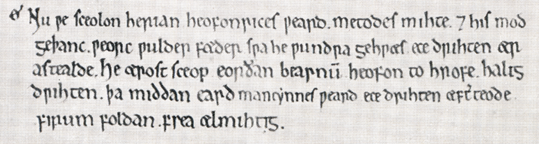 Nu ƿe sceolon herıan heofonrıces ƿeard. metodes mıhte. ⁊ hıs mod
geþanc. ƿeorc ƿulder fæder sƿa he ƿundra gehƿæs ece drıhten ær
astealde. he ærost sceop eorðan bearnū heofon to hrofe. halıg
drıhten. þa mıddan eard mancynnes ƿeard ece drıhten æft̄ teode
fırum foldan. frea ælmıhtıg.